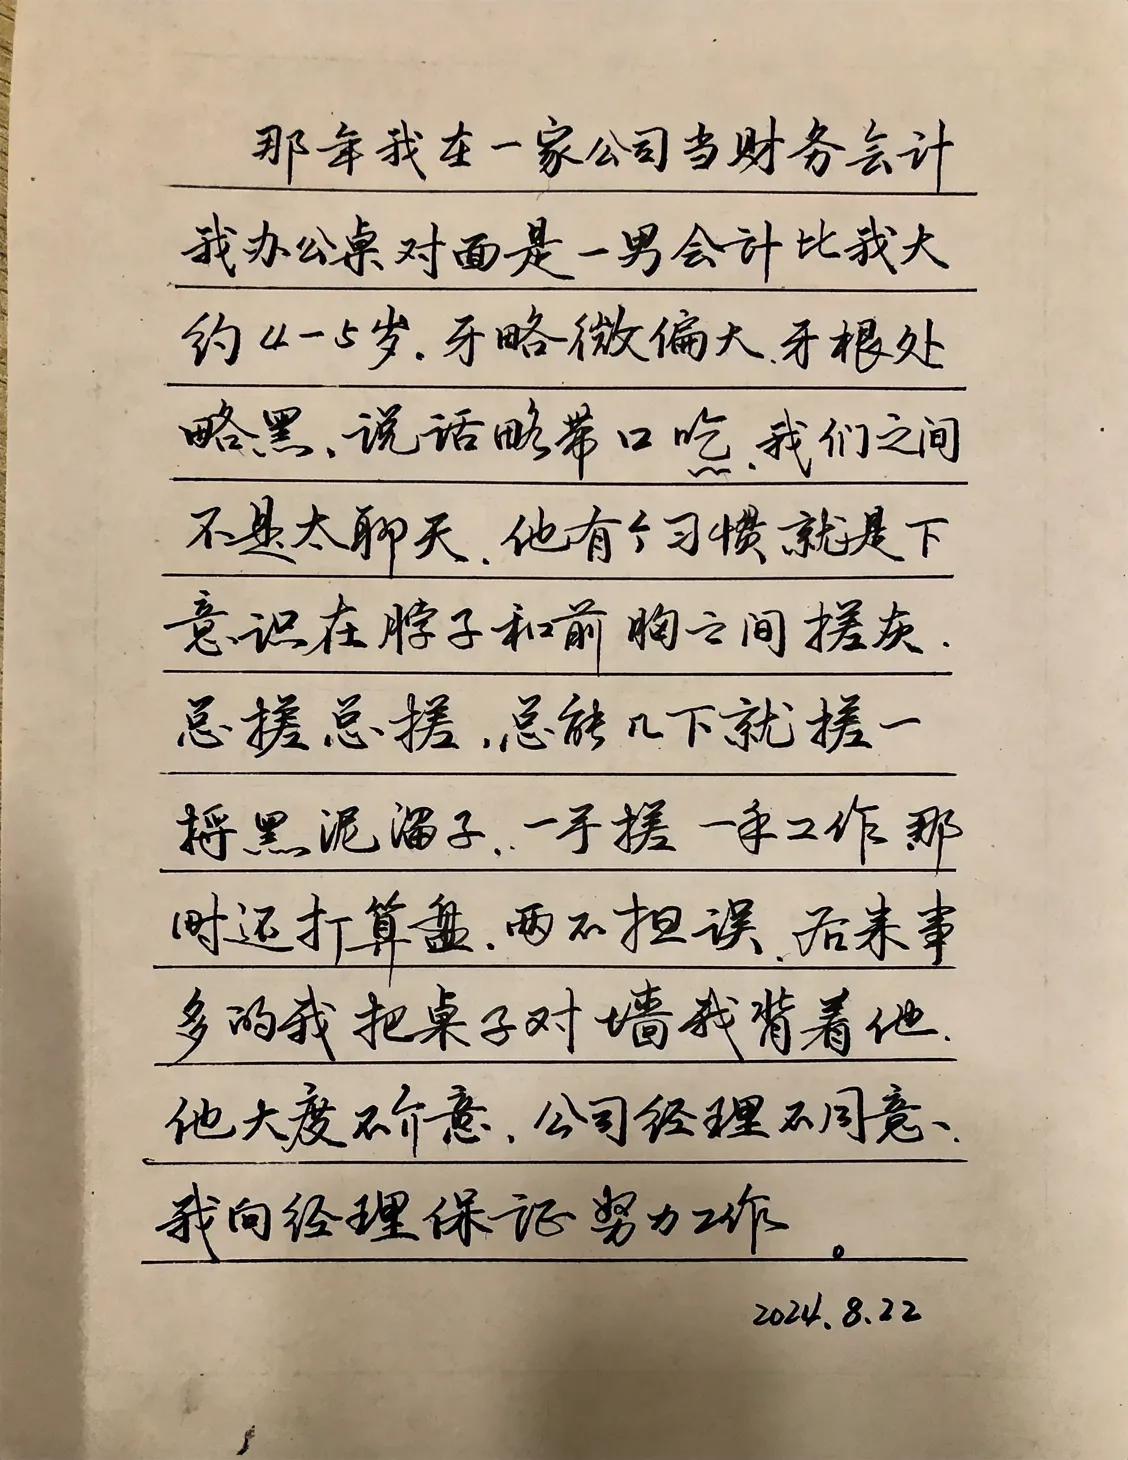 那年我在一家公司当财务会计
我办公桌对面是一男会计比我大
约4-5岁.牙略微偏大、牙根处
略黑、说话略带口吃、我们之间
不是太聊天、他有个习惯就是下
意识在脖子和前胸之间搓灰.
总搓总搓,总能几下就搓一
捋黑泥溜子、一手搓一手工作那
时还打算盘、两不担误、后来事
多的我把桌子对墙我背着他、
他大度不介意、公司经理不同意、
我向经理保证努力工作。
2024.8.22